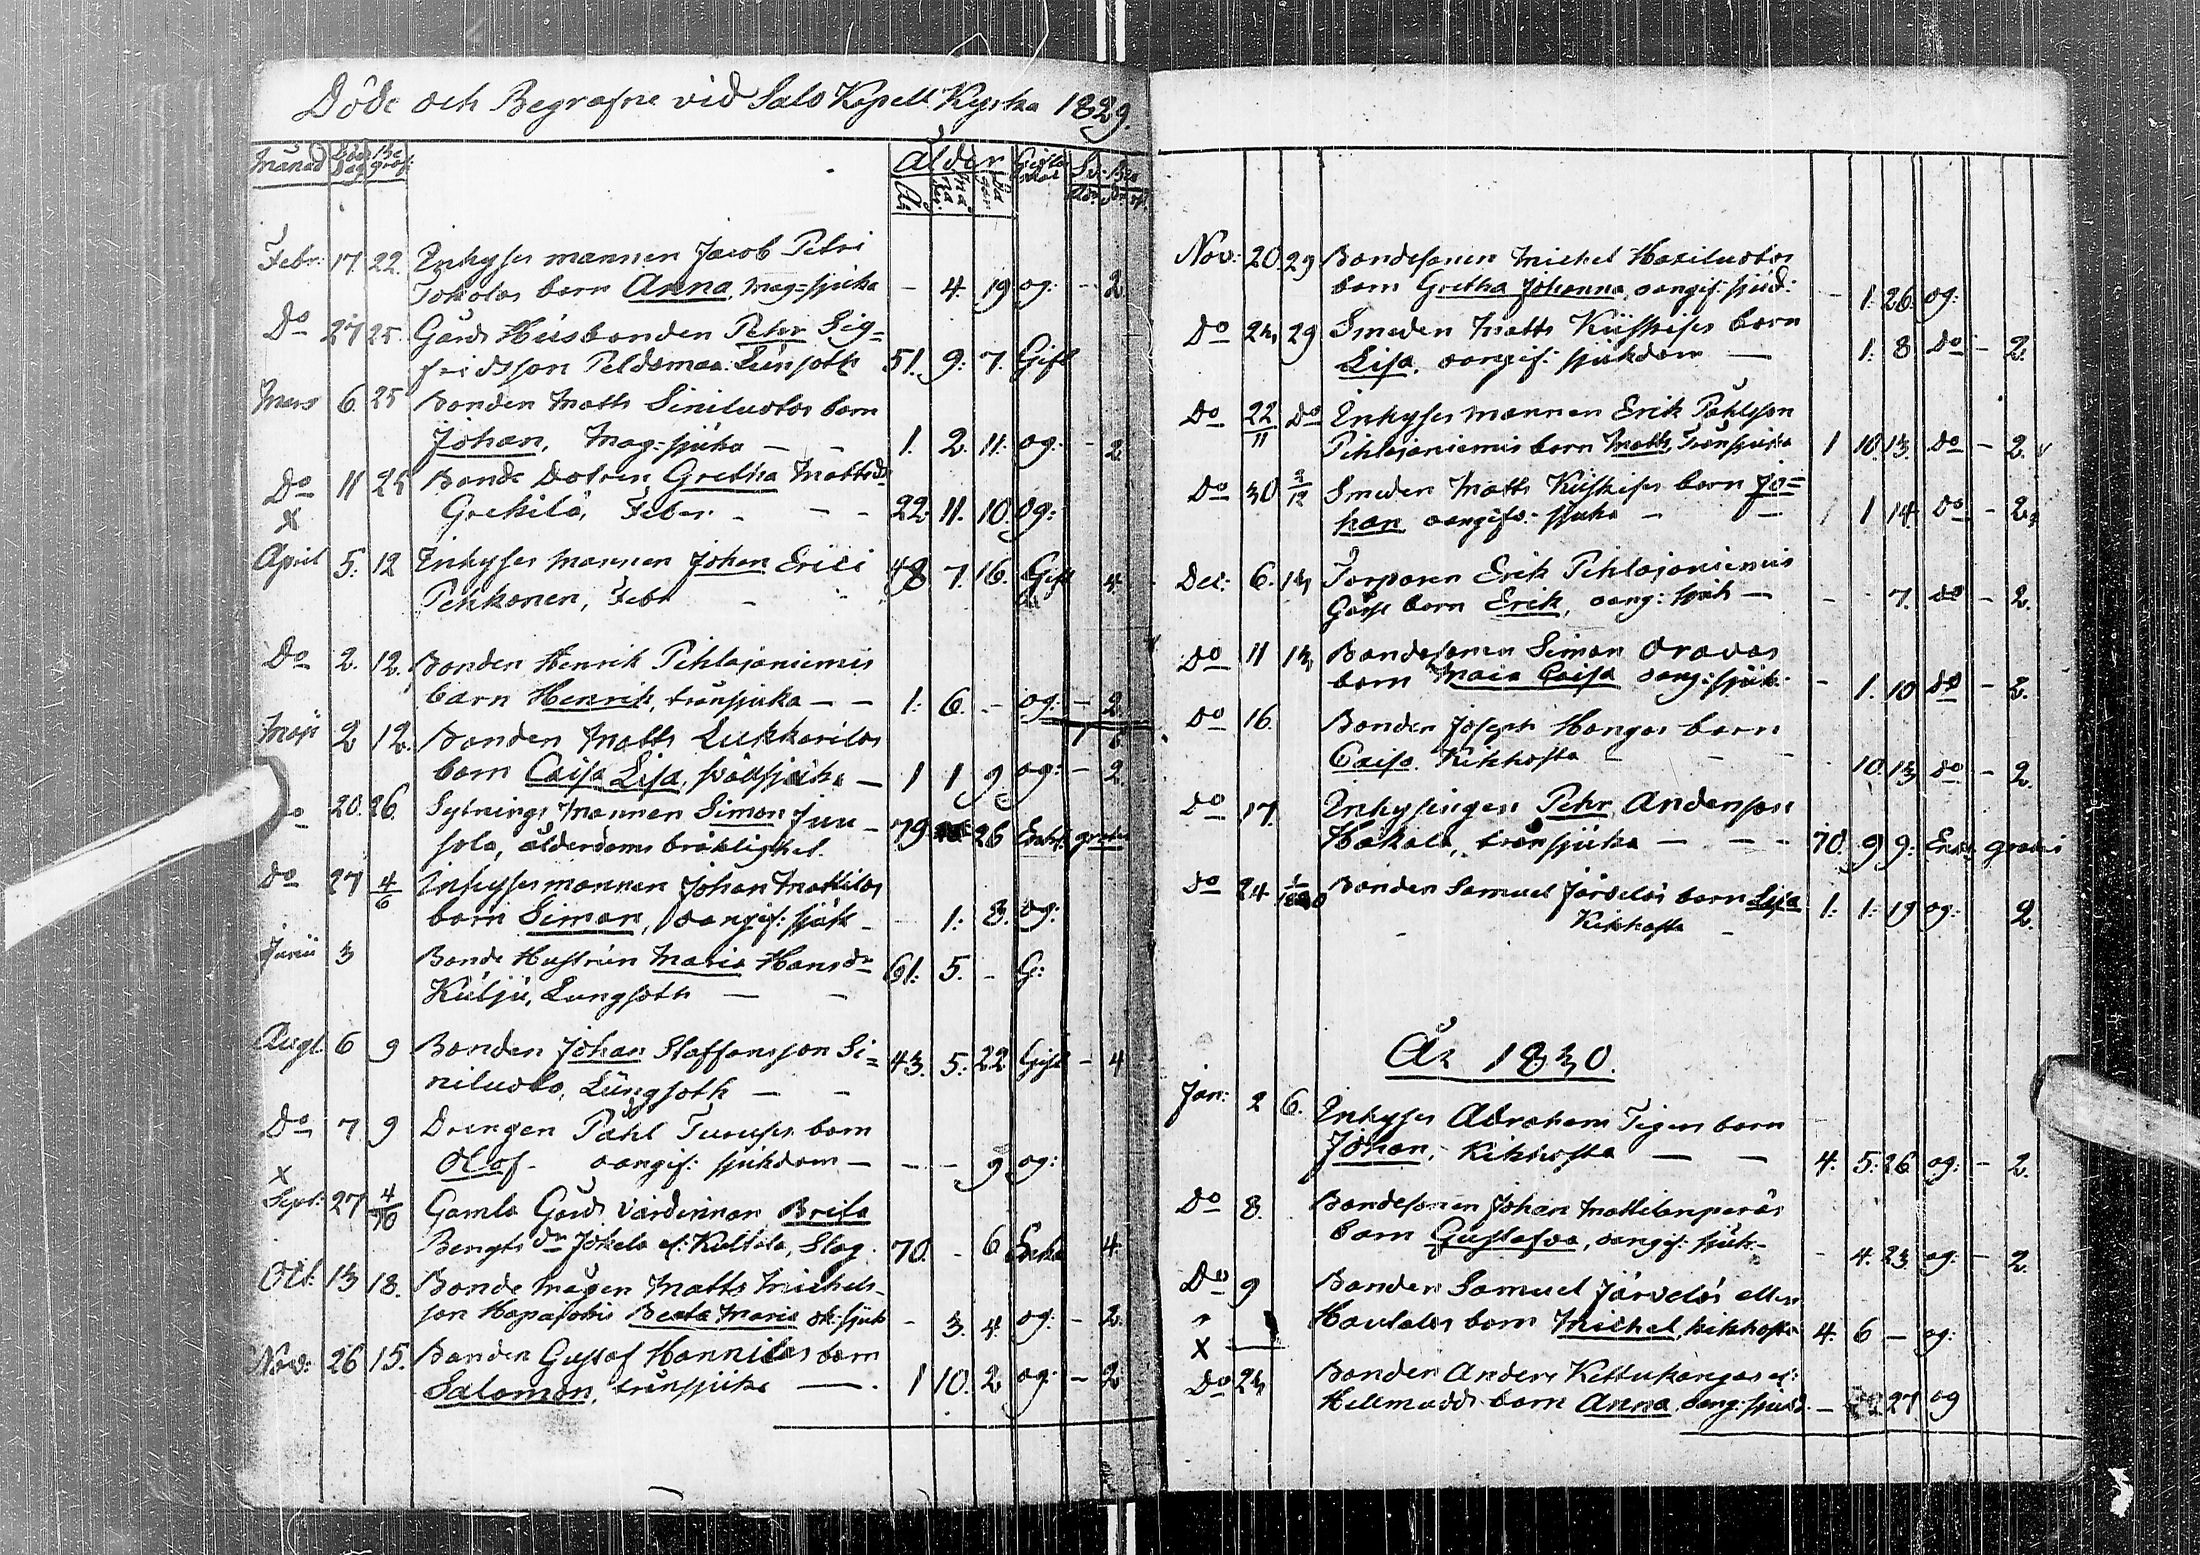 Döde och Begrafne vid Salo Kapell Kyrka 1829.
Månad Död Dag Be graf: Ålder Gifta
År Må na der. Da gar
Febr: 17. 22. Inhyses mannen Jacob Petri
Jokolas barn Anna, mag=sjuka - 4. 19 og: - 2
Do 27 25. Gårds Husbonden Pehr Sig=
fridsson Peldomaa: Lungsoth 51. 9: 7. Gift
Mars 6. 25 Bonden Matts Siniluotos barn
Johan, Mag=sjuka - - 1. 2. 11: og: - 2
Do 11 25 Bonde Dotren Gretha Mattsdr
X Grekilä, Feber - - - 22. 11. 10. og:
April 5: 12 Inhyses mannen Johan Erici 48 7. 16. Gift 4
Pehkonen, Febr - -
Do 2. 12. Bonden Henrik Pihlajaniemis
barn Henrik, bränsjuka - - 1: 6. - og: - 2
Maji 2 12. Bonden Matts Lukkarilas
barn Caisa Lisa, - 1 1 9 og: - 2.
20. 26. Sytnings Mannen Simon Juu- 79 26 Enkl. gratis
sola, ålderdoms bräklighet.
Do 27 4/6 Inhyses mannen Johan Mattilas
barn Simon, oangif: sjuk - 1: 3. og:
Junii 3 Bonde Hustrun Maria Hansdr 61: 5. - G:
Kulju, Lungsoth - -
Augt 6 9 Bonden Johan Staffansson Si= 43. 5. 22 Gift - 4
niluoto, Lungsoth - -
Do 7. 9 Drengen Påhl Turuses barn
Olof - oangif: sjukdom - - - 9 og:
X
Sept: 27 4/10 Gamla Gårds Värdinnan Brita
Bengts dr Jokela el: Kultala, Slag. 70. - 6 Enka 4
Oct: 13 18. Bonde Mågen Matts Michels-
son Beata Maria - 3. 4. og: - 2.
Nov: 26 15. Bonden Gustaf Hannilas barn
Salomon, bränsjuka - 1 10. 2 og: - 2
Nov: 20. 29 Bondesonen Michel Haxiluotos
barn Gretha Johanna, oangif: sjukd: - 1. 26. og:
Do 23 29 Smeden Matts Kiiskises barn
Lisa, oangif: sjukdom - 1: 8 Do - 2.
Do 22/11 Do Inhyses mannen Erik Påhlsson
Pihlajaniemis barn Matts, bränsjuka 1 10. 13. do - 2.
Do 30 3/12 Smeden Matts Kiiskises barn Jo=
han oangif: sjuka - - 1 14 do - 2.
Dec: 6. 13 Torparen Erik Pihlajaniemis
barn Erik, oang: sjuk - - - 7. do - 2.
Do 11 13 Bondesonen Simon Oravas
barn Maia Caisa oang: sjuk - - 1. 10 do - 2.
Do 16. Bonden Joseph Hangas barn
Caisa, Kikhosta - - - 10. 13 do - 2.
Do 17. Inhysingen Pehr Andersson
Håkala, bränsjuka - - - 70 9 9: Enkl gratis
Do 24 Bonden Samuel Järvelas barn Lisa 1: 1: 19 og: 2.
Kikhosta -
År 1830.
Jan: 2 6. Inhyses Abraham Tigers barn
Johan, - Kikhosta - - 4. 5: 26 og: - 2.
Do 8. Bondesonen Johan Mattilanperäs
barn Gustafva, oangif: sjuk- - 4. 23 og: - 2.
Do 9 Bonden Samuel Järveläs eller
X Hautalas barn Michel, kikhosta 4. 6 - og:
Do 23 Bonden Anders Kettukangas el:
barn Anna, oang: sjukd. - 27 og